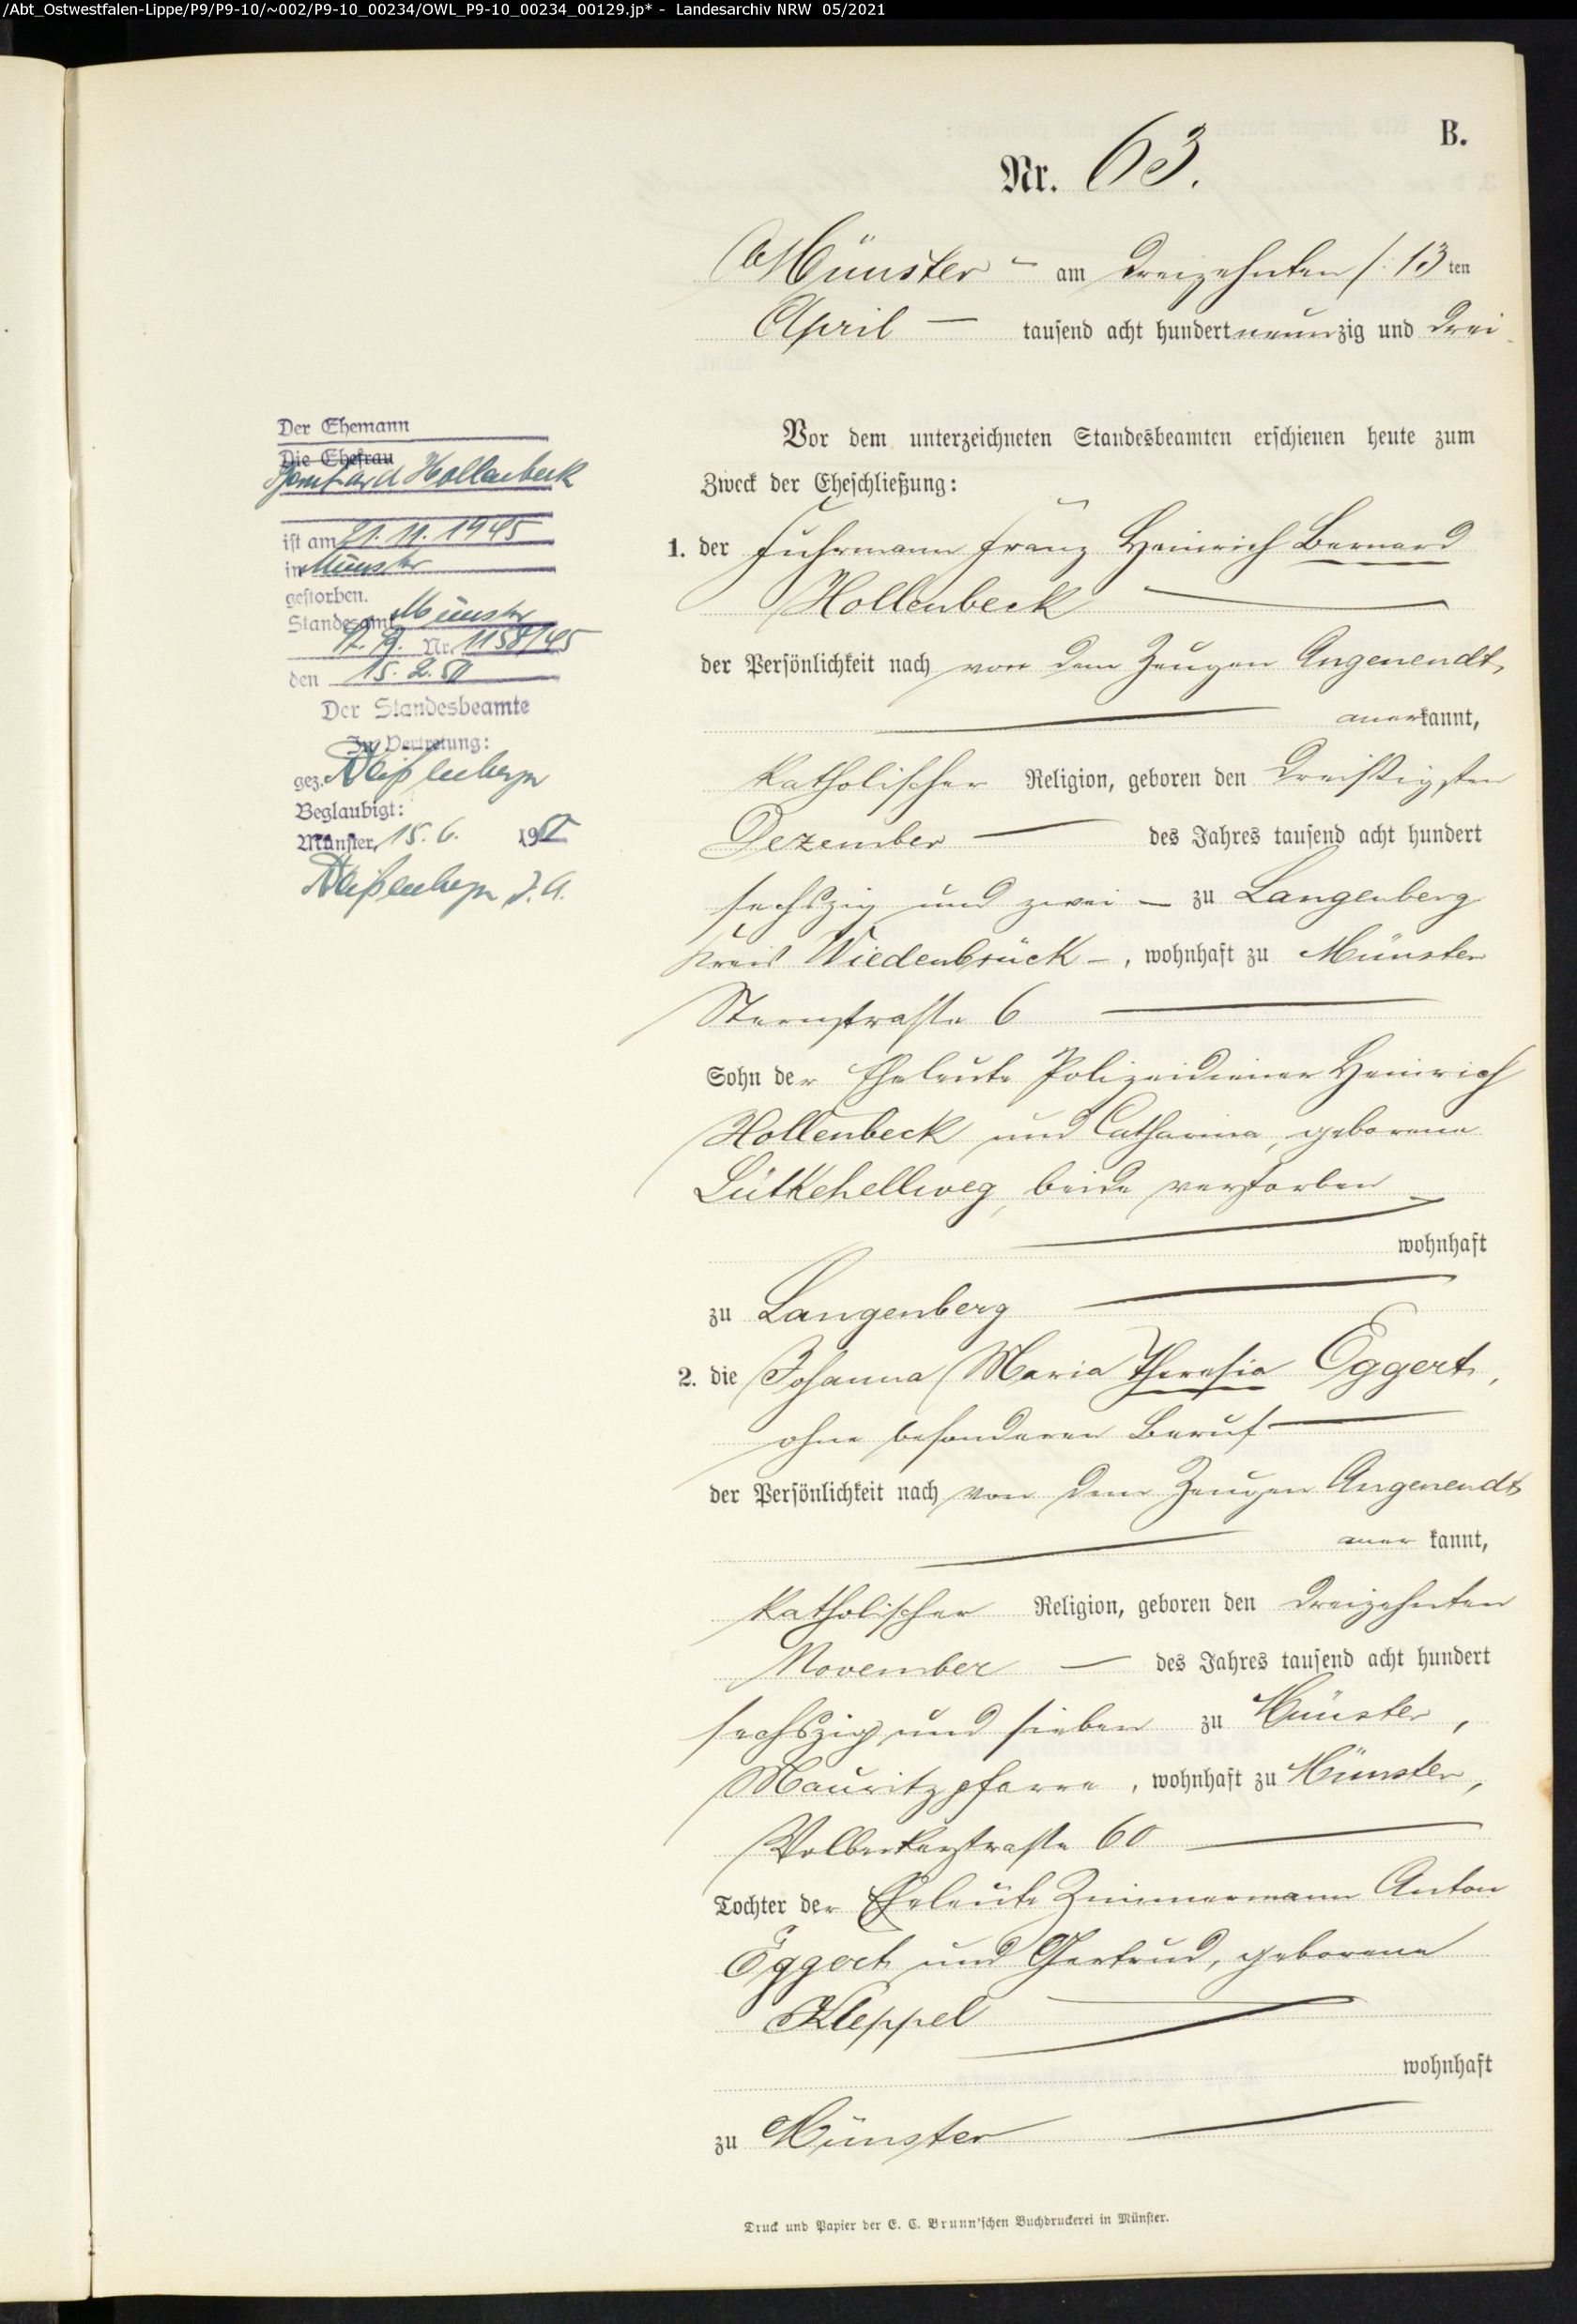 /Abt_Ostwestfalen-Lippe/P9/P9-10/~002/P9-10_00234/OWL_P9-10_00234_00129.jp* - Landesarchiv NRW 05/2021
B.
Nr. 63.
Münster - am dreizehnten /: 13 ten
April — tausend acht hundert neunzig und drei
Vor dem unterzeichneten Standesbeamten erschienen heute zum
Zweck der Eheschließung:
1. der Fuhrmann Franz Heinrich Bernard
Hollenbeck
der Persönlichkeit nach von dem Zeugen Angenendt,
anerkannt,
katholischer Religion, geboren den dreißigsten
Dezember — des Jahres tausend acht hundert
sechszig und zwei — zu Langenberg
Kreis Wiedenbrück -, wohnhaft zu Münster
Sternstraße 6
Sohn der Eheleute Polizeidiener Heinrich
Hollenbeck und Catharina, geborene
Lütkehellweg, beide verstorben
wohnhaft
zu Langenberg
2. die Johanna Maria Theresia Eggert,
ohne besonderen Beruf
der Persönlichkeit nach von dem Zeugen Angenendt
aner kannt,
katholischer Religion, geboren den dreizehnten
November — des Jahres tausend acht hundert
sechszig und sieben zu Münster,
Mauritzpfarre, wohnhaft zu Münster,
Wolbeckerstraße 60
Tochter der Eheleute Zimmermann Anton
Eggert und Gertrud, geborene
Kleppel
wohnhaft
zu Münster
Druck und Papier der E. C. Brunn'schen Buchdruckerei in Münster.
Der Ehemann
Die Ehefrau
Bernhard Hollenbeck
ist am 21. 11. 1945
in Münster
gestorben.
Standesamt Münster
Nr. 1158/45
den 15. 2. 51
Der Standesbeamte
In Vertretung:
gez.
Beglaubigt:
Münster, 15. 6. 195
J. A.